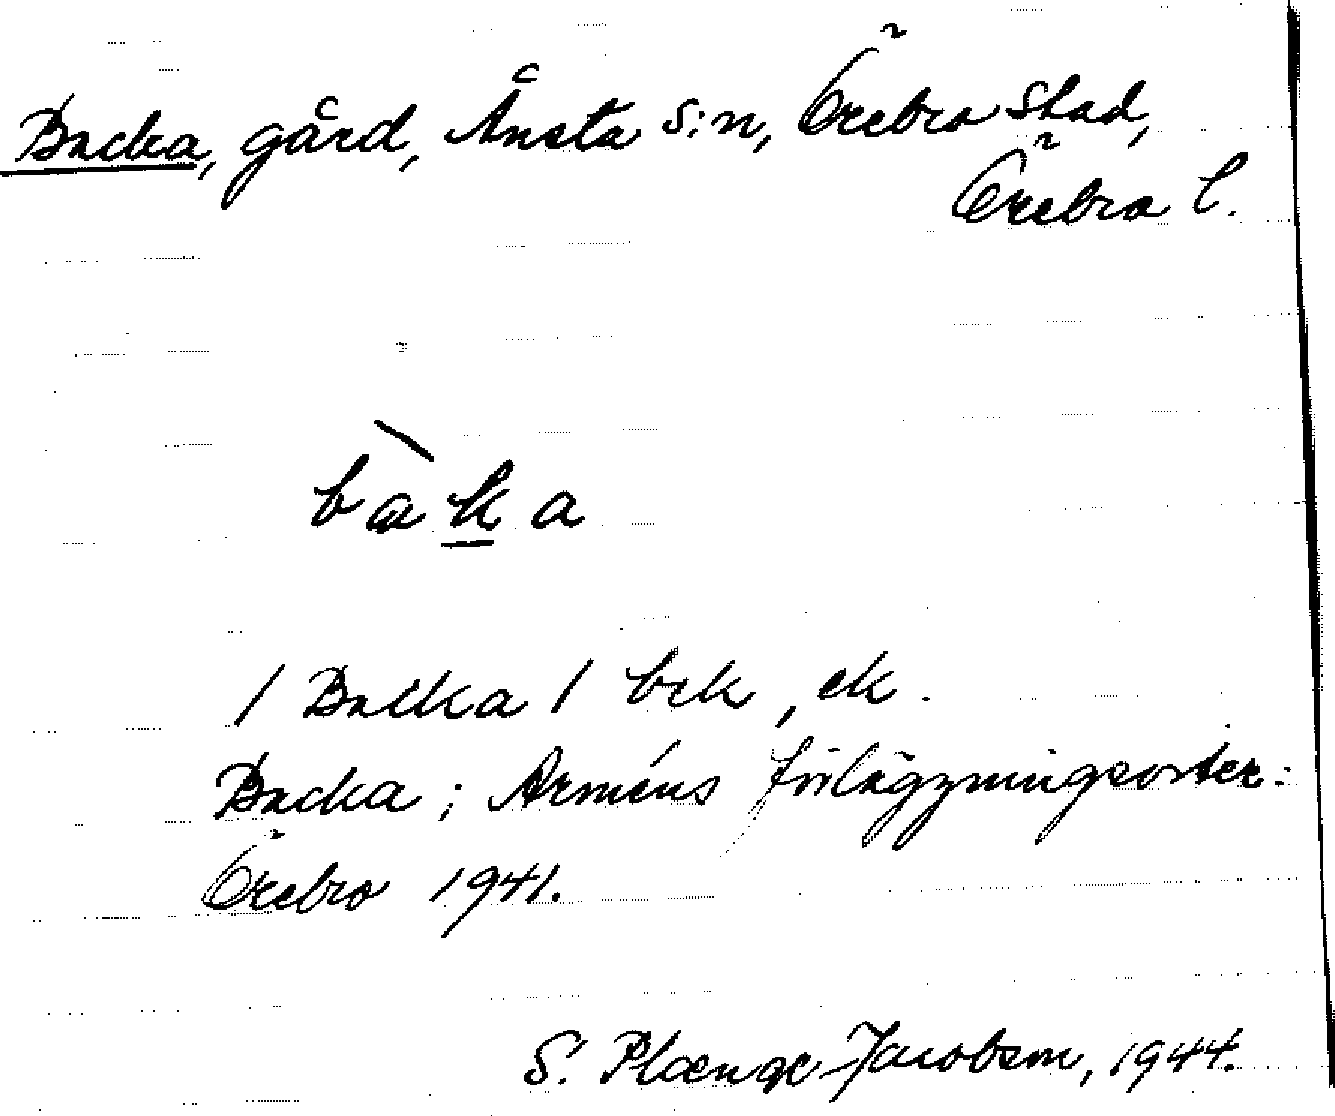 Backa, gård, Ånsta s:n, Örebro stad,
Örebro l.
bàka
/ Backa / bek, ek.
Backa; Arméns förläggningsorter:
Örebro 1941.
S. Plænge-Jacobson, 1944.